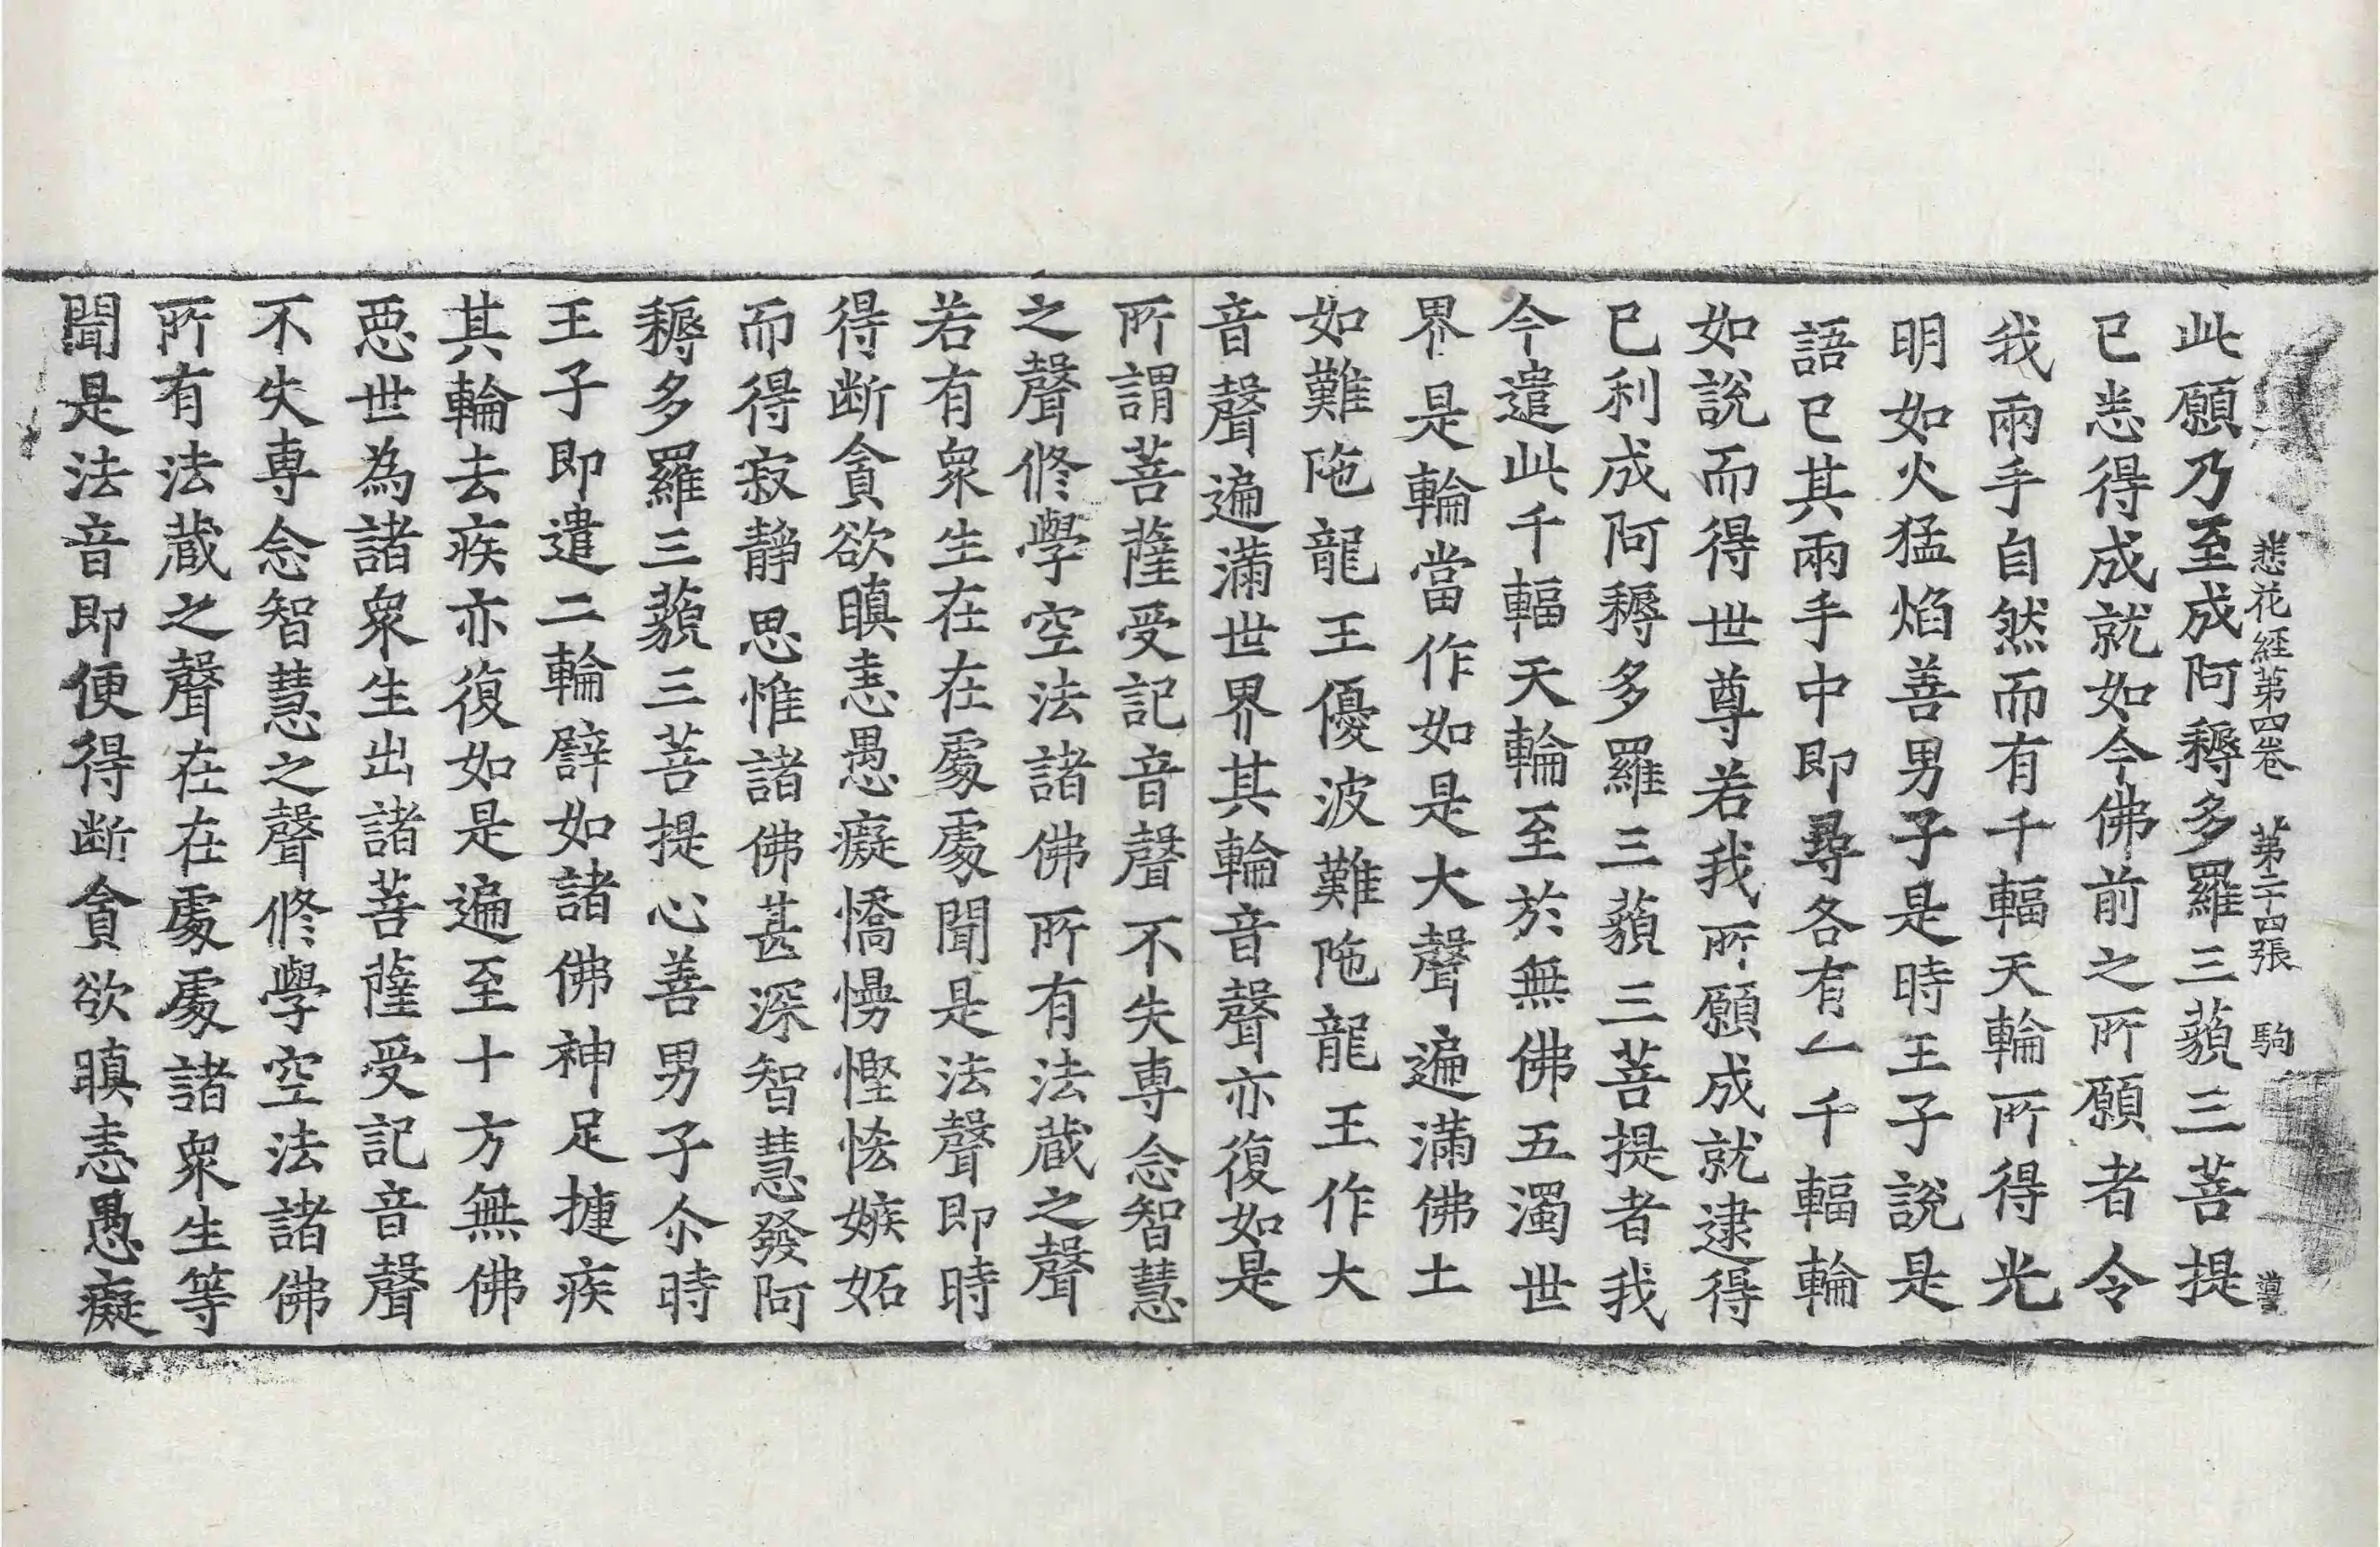 悲花經第四卷 第二十四張 駒
此願乃至成阿耨多羅三藐三菩提
已悉得成就如今佛前之所願者令
我兩手自然而有千輻天輪所得光
明如火猛焰善男子是時王子說是
語已其兩手中即尋各有一千輻輪
如說而得世尊若我所願成就逮得
已利成阿耨多羅三藐三菩提者我
今遣此千輻天輪至於無佛五濁世
界是輪當作如是大聲遍滿佛土
如難陁龍王優波難陁龍王作大
音聲遍滿世界其輪音聲亦復如是
所謂菩薩受記音聲不失專念智慧
之聲修學空法諸佛所有法藏之聲
若有衆生在在處處聞是法聲即時
得断貪欲瞋恚愚癡憍慢慳悋嫉妬
而得寂静思惟諸佛甚深智慧發阿
耨多羅三藐三菩提心善男子尒時
王子即遣二輪辟如諸佛神足揵疾
其輪去疾亦復如是遍至十方無佛
惡世為諸衆生出諸菩薩受記音聲
不失專念智慧之聲修學空法諸佛
所有法藏之聲在在處處諸衆生等
聞是法音即便得断貪欲瞋恚愚癡